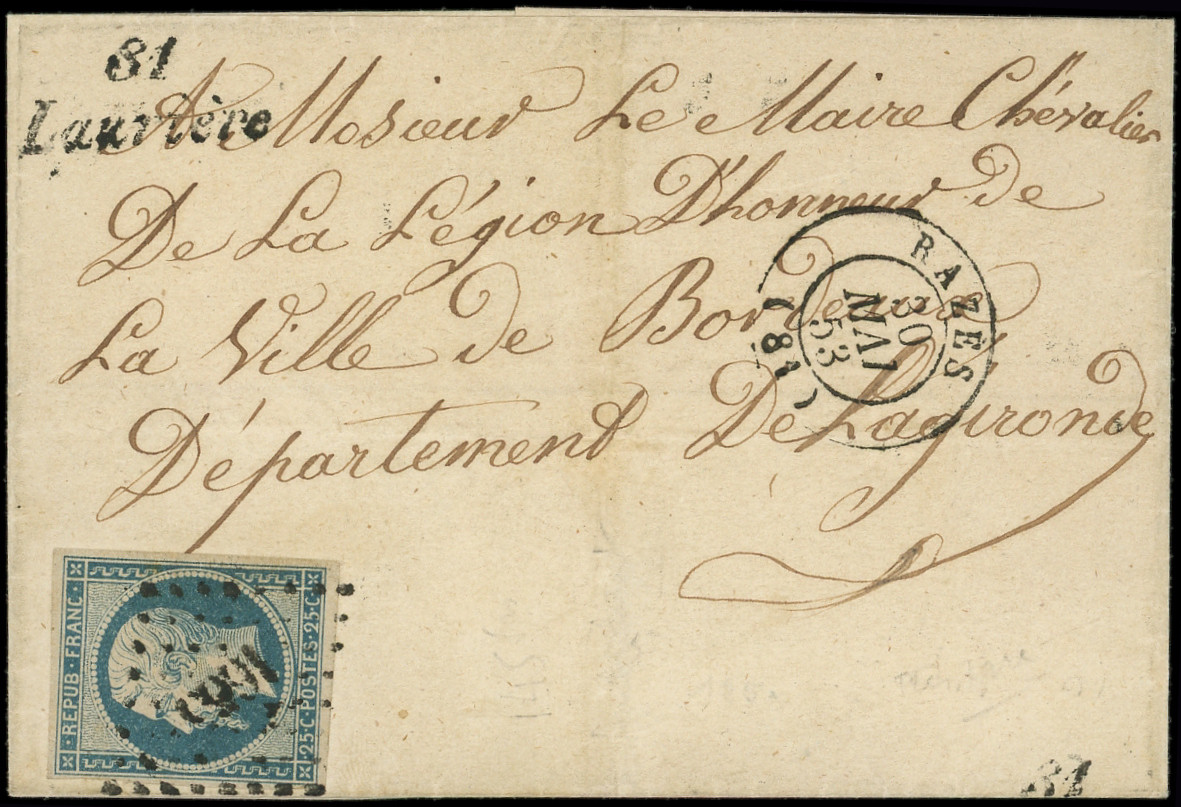 81
Laurière
A Mosieur Le Maire Chévalier
De La Légion D'honneur de
La Ville de Bordeaux,
Département De Lagironde
RAZÈS
30
MAI
53
(81)
REPUB·FRANC·
25·C·POSTES·25·C·
81